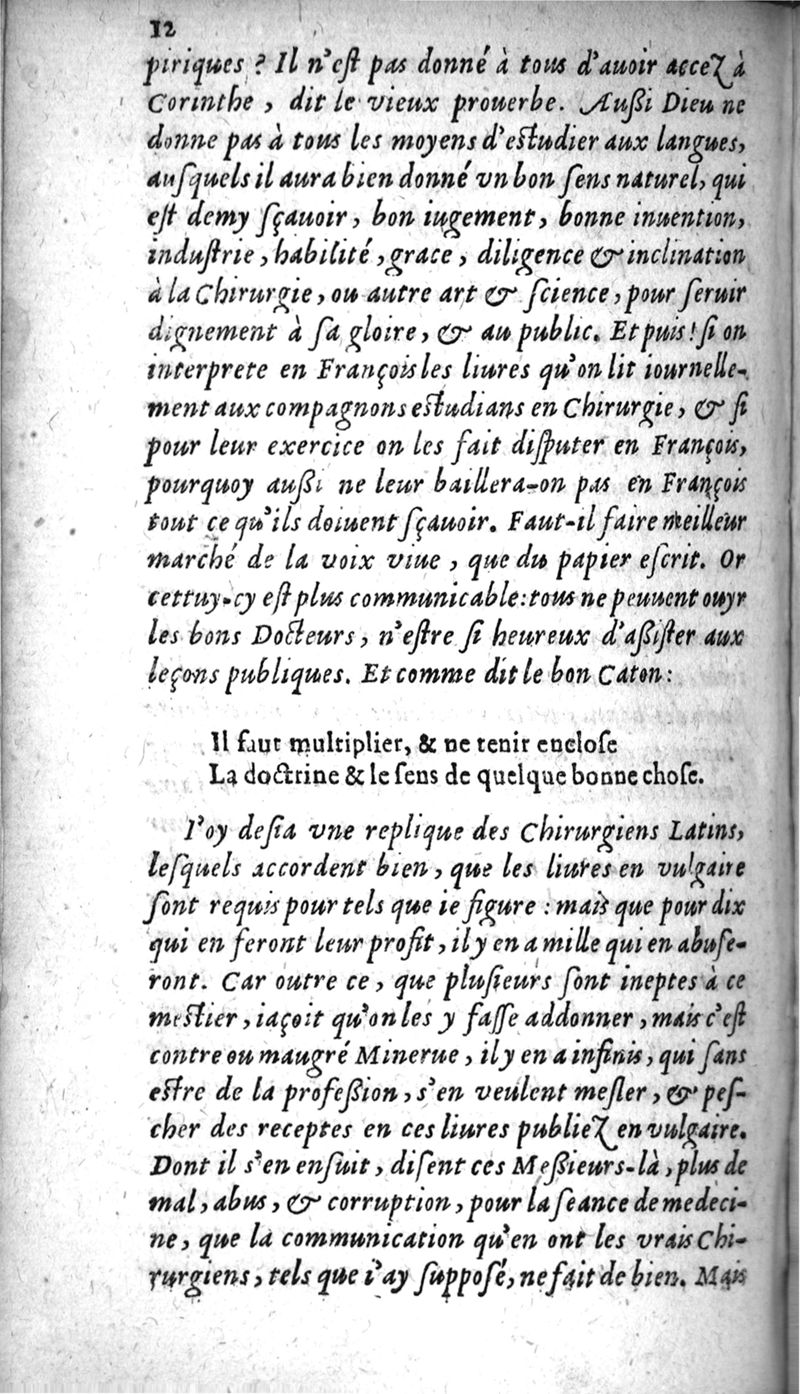 12
piriques ? Il n'eſt pas donné à tous d'auoir accez à
Corinthe, dit le vieux prouerbe. Außi Dieu ne
donne pas à tous les moyens d'eſtudier aux langues,
auſquels il aura bien donné vn bon ſens naturel, qui
eſt demy ſçauoir, bon iugement, bonne inuention,
induſtrie, habilité, grace, diligence & inclination
à la Chirurgie, ou autre art & ſcience, pour ſeruir
dignement à ſa gloire, & au public. Et puis! ſi on
interprete en François les liures qu'on lit iournelle-
ment aux compagnons eſtudians en Chirurgie, & ſi
pour leur exercice on les fait diſputer en François,
pourquoy außi ne leur baillera-on pas en François
tout ce qu'ils doiuent ſçauoir. Faut-il faire meilleur
marché de la voix viue, que du papier eſcrit. Or
cettuy-cy eſt plus communicable: tous ne peuuent ouyr
les bons Docteurs, n'eſtre ſi heureux d'aßiſter aux
leçons publiques. Et comme dit le bon Caton:
Il faut multiplier, & ne tenir encloſe
La doctrine & le ſens de quelque bonne choſe.
I'oy deſia vne replique des Chirurgiens Latins,
leſquels accordent bien, que les liures en vulgaire
ſont requis pour tels que ie figure : mais que pour dix
qui en feront leur profit, il y en a mille qui en abuſe-
ront. Car outre ce, que pluſieurs ſont ineptes à ce
meſtier, iaçoit qu'on les y faſſe addonner, mais c'eſt
contre ou maugré Minerue, il y en a infinis, qui ſans
eſtre de la profeßion, s'en veulent meſler, & peſ-
cher des receptes en ces liures publiez en vulgaire.
Dont il s'en enſuit, diſent ces Meßieurs-là, plus de
mal, abus, & corruption, pour la ſeance de medeci-
ne, que la communication qu'en ont les vrais Chi-
rurgiens, tels que i'ay ſuppoſé, ne fait de bien. Mais